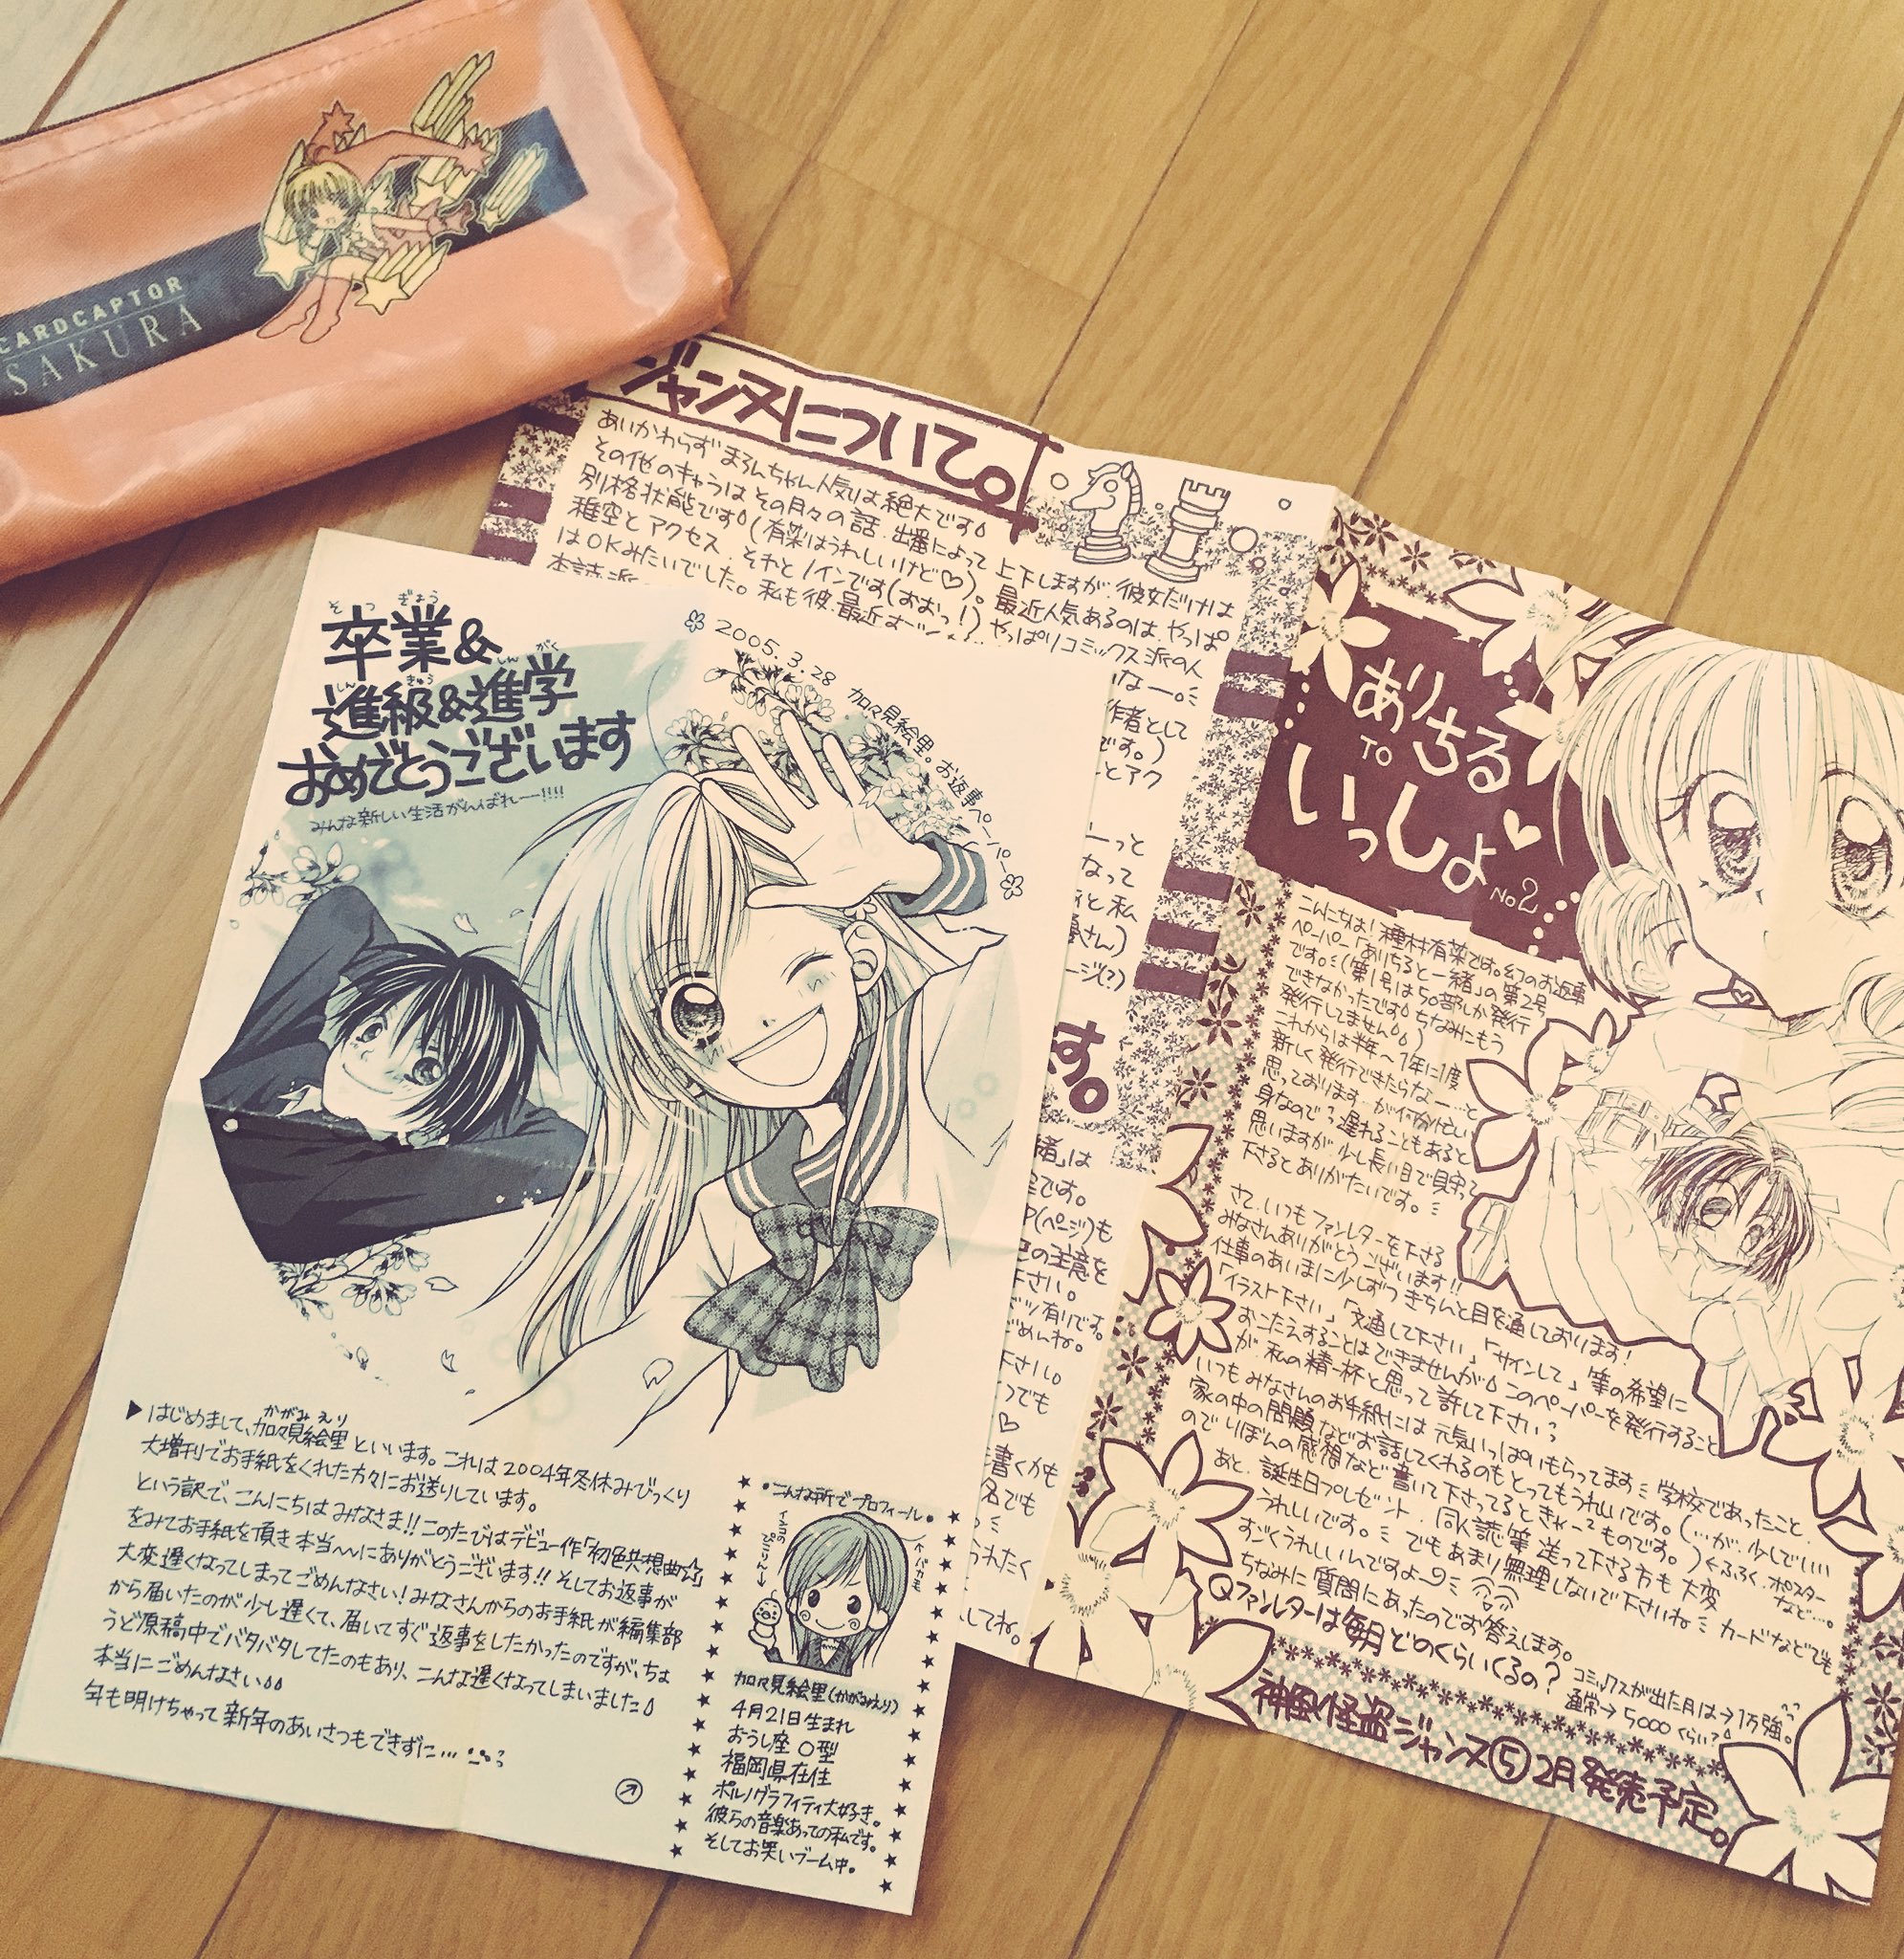 CARDCAPTOR
SAKURA
ジャンヌについて。
あいかわらず まろんちゃん人気は絶大です
その他のキャラは その月々の話、出番によって 上下しますが、彼女だけは
別格状態です (有菜はうれしいけど♡)。最近人気あるのは、やっぱ
稚空とアクセス、それとノインです(おおっ!) やっぱりコミックス派の人
はOKみたいでした。私も彼、最近
そつ ぎょう
卒業&
しん きゅう しん がく
進級&進学
おめでとうございます
みんな新しい生活がんばれー!!!!
2005.3.28 加々見絵里。お返事ペーパー
▶はじめまして、加々見絵里といいます。これは2004年冬休みびっくり
かがみ えり
大増刊でお手紙をくれた方々にお送りしています。
という訳で、こんにちはみなさま!! このたびはデビュー作「初色共想曲☆」
をみてお手紙を頂き本当〜〜にありがとうございます!! そしてお返事が
大変遅くなってしまってごめんなさい! みなさんからのお手紙が編集部
から届いたのが少し遅くて、届いてすぐ返事をしたかったのですが、ちょ
うど原稿中でバタバタしてたのもあり、こんな遅くなってしまいました
本当にごめんなさい
年も明けちゃって新年のあいさつもできずに…
・こんな所でプロフィール・
加々見絵里(かがみえり)
4月21日生まれ
おうし座 O型
福岡県在住
ポルノグラフィティ大好き。
彼らの音楽あっての私です。
そしてお笑いブーム中。
ありちる
TO
いっしょ♡
No2
こんにちは! 種村有菜です。幻のお返事
ペーパー「ありちると一緒」の第2号
です。(第1号は50部しか発行
できなかったです ちなみにもう
発行してません)
これからは半年〜1年に1度
新しく発行できたらなー…と
思っております…が何分忙しい
身なので 遅れることもあると
思いますが、少し長い目で見守って
下さるとありがたいです。
さて、いつもファンレターを下さる
みなさんありがとうございます!!
仕事のあいまに少しずつ きちんと目を通しております!
「イラスト下さい」「文通して下さい」「サインして」等の希望に
おこたえすることはできませんが このペーパーを発行すること
が、私の精一杯と思って許して下さい
いつもみなさんのお手紙には 元気いっぱいもらってます 学校であったこと、
家の中の問題などお話してくれるのもとってもうれしいです。(…が、少しでいい
ので りぼんの感想など書いて下さってるとき ものです。)
あと、誕生日プレゼント、同人誌等 送って下さる方も 大変
うれしいです。 でもあまり無理しないで下さいね カードなどでも
すごくうれしいんですよ
ふろく、ポスター
など…。
ちなみに 質問にあったのでお答えします。
Qファンレターは毎月どのくらいくるの?
コミックスが出た月は→1万強。
通常→5000くらい?
神風怪盗ジャンヌ⑤2月発売予定。